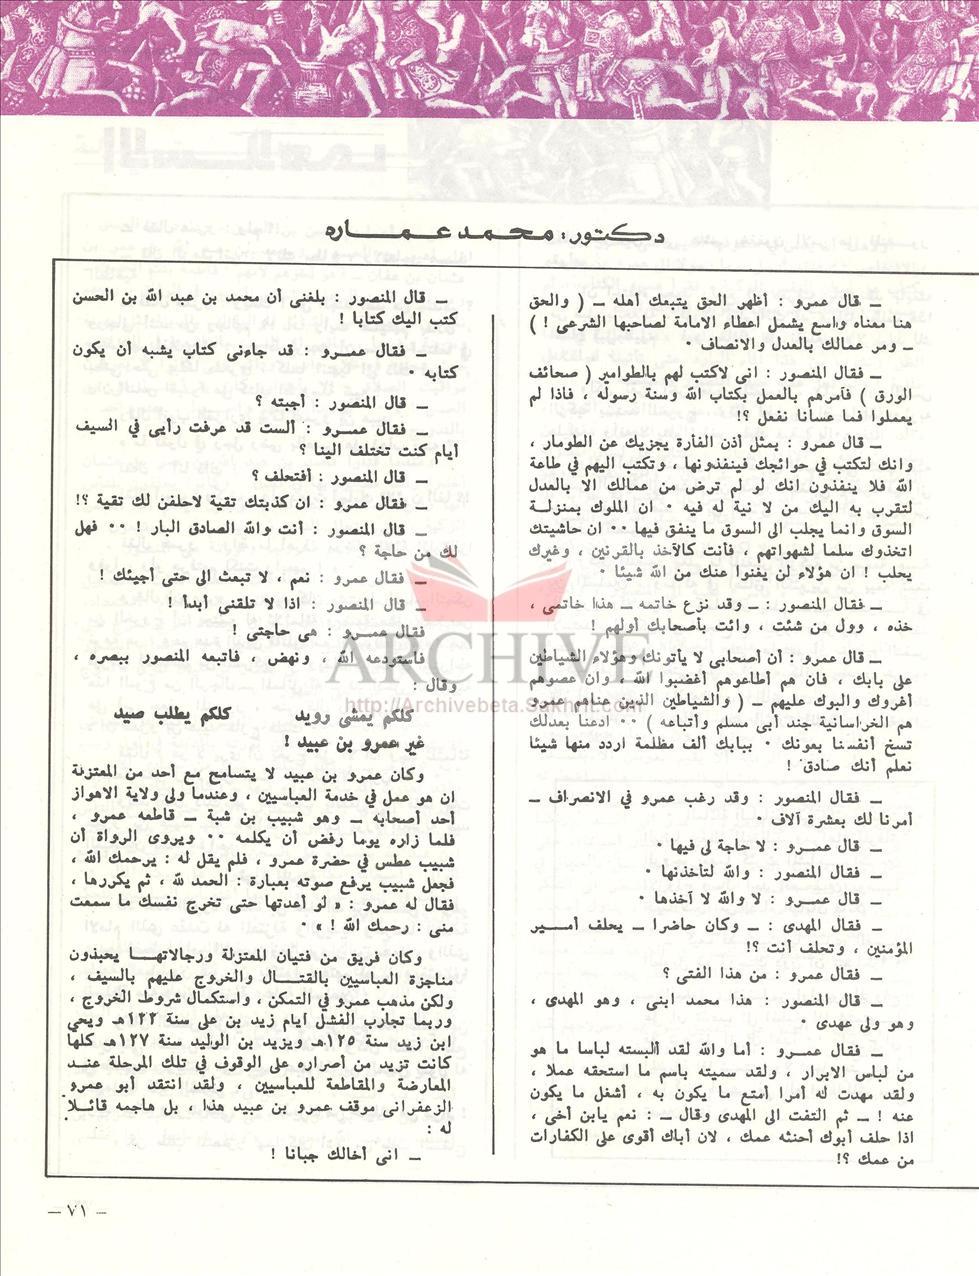 دكتور: محمد عماره
ـ قال عمرو : أظهر الحق يتبعك أهله ـ ( والحق
هنا معناه واسع يشمل اعطاء الامامة لصاحبها الشرعى ! )
ـ ومر عمالك بالعدل والانصاف ٠
ـ فقال المنصور : انى لاكتب لهم بالطوامير ( صحائف
الورق ) فآمرهم بالعمل بكتاب الله وسنة رسوله ، فاذا لم
يعملوا فما عسانا نفعل ؟!
ـ قال عمرو : بمثل أذن الفأرة يجزيك عن الطومار ،
وانك لتكتب في حوائجك فينفذونها ، وتكتب اليهم في طاعة
الله فلا ينفذون انك لو لم ترض من عمالك الا بالعدل
لتقرب به اليك من لا نية له فيه ٠ ان الملوك بمنزلة
السوق وانما يجلب الى السوق ما ينفق فيها ٠٠ ان حاشيتك
اتخذوك سلما لشهواتهم ، فأنت كالآخذ بالقرنين ، وغيرك
يحلب ! ان هؤلاء لن يغنوا عنك من الله شيئا ٠
ـ فقال المنصور : ـ وقد نزع خاتمه ـ هذا خاتمى ،
خذه ، وول من شئت ، وائت بأصحابك أولهم !
ـ قال عمرو : أن أصحابى لا يأتونك وهؤلاء الشياطين
على بابك ، فان هم اطاعوهم أغضبوا الله ، وان عصوهم
أغروك والبوك عليهم ـ ( والشياطين الذين عناهم عمرو
هم الخراسانية جند أبى مسلم وأتباعه ) ٠٠ ادعنا بعدلك
تسخ أنفسنا بعونك ٠ ببابك ألف مظلمة اردد منها شيئا
نعلم أنك صادق !
ـ فقال المنصور : وقد رغب عمرو في الانصراف ـ
أمرنا لك بعشرة آلاف ٠
ـ قال عمرو : لا حاجة لى فيها ٠
ـ فقال المنصور : والله لتأخذنها ٠
ـ قال عمرو : لا والله لا آخذها ٠
ـ فقال المهدى : ـ وكان حاضرا ـ يحلف أمير
المؤمنين ، وتحلف أنت ؟!
ـ فقال عمرو : من هذا الفتى ؟
ـ قال المنصور : هذا محمد ابنى ، وهو المهدى ،
وهو ولى عهدى ٠
ـ فقال عمرو : أما والله لقد ألبسته لباسا ما هو
من لباس الابرار ، ولقد سميته باسم ما استحقه عملا ،
ولقد مهدت له أمرا أمتع ما يكون به ، أشغل ما يكون
عنه ! ـ ثم التفت الى المهدى وقال ـ : نعم يابن أخى ،
اذا حلف أبوك أحنثه عمك ، لان أباك أقوى على الكفارات
من عمك ؟!
ـ قال المنصور : بلغنى أن محمد بن عبد الله بن الحسن
كتب اليك كتابا !
ـ فقال عمرو : قد جاءنى كتاب يشبه أن يكون
كتابه ٠
ـ قال المنصور : أجبته ؟
ـ فقال عمرو : ألست قد عرفت رأيى في السيف
أيام كنت تختلف الينا ؟
ـ قال المنصور : أفتحلف ؟
ـ فقال عمرو : ان كذبتك تقية لاحلفن لك تقية ؟!
ـ قال المنصور : أنت والله الصادق البار ! ٠٠ فهل
لك من حاجة ؟
ـ فقال عمرو : نعم ، لا تبعث الى حتى أجيئك !
ـ قال المنصور : اذا لا تلقنى أبدأ !
فقال عمرو : هى حاجتى !
فاستودعه الله ، ونهض ، فاتبعه المنصور ببصره ،
وقال :
كلكم يمشى رويد كلكم يطلب صيد
غير عمرو بن عبيد !
وكان عمرو بن عبيد لا يتسامح مع أحد من المعتزلة
ان هو عمل في خدمة العباسيين ، وعندما ولى ولاية الاهواز
أحد أصحابه ـ وهو شبيب بن شبة ـ قاطعه عمرو ،
فلما زاره يوما رفض أن يكلمه ٠٠ ويروى الرواة أن
شبيب عطس في حضرة عمرو ، فلم يقل له : يرحمك الله ،
فجعل شبيب يرفع صوته بعبارة : الحمد لله ، ثم يكررها ،
فقال له عمرو : « لو أعدتها حتى تخرج نفسك ما سمعت
منى : رحمك الله ! » ٠
وكان فريق من فتيان المعتزلة ورجالاتها يحبذون
مناجزة العباسيين بالقتال والخروج عليهم بالسيف ،
ولكن مذهب عمرو في التمكن ، واستكمال شروط الخروج ،
وربما تجارب الفشل أيام زيد بن على سنة ١٢٢هـ ويحي
ابن زيد سنة ١٢٥هـ ويزيد بن الوليد سنة ١٢٧هـ كلها
كانت تزيد من أصراره على الوقوف في تلك المرحلة عند
المعارضة والمقاطعة للعباسيين ، ولقد انتقد أبو عمرو
الزعفرانى موقف عمرو بن عبيد هذا ، بل هاجمه قائلا
له :
ـ انى أخالك جبانا !
ARCHIVE
http://Archivebeta.Sakhrit.com
ـ ٧١ ـ